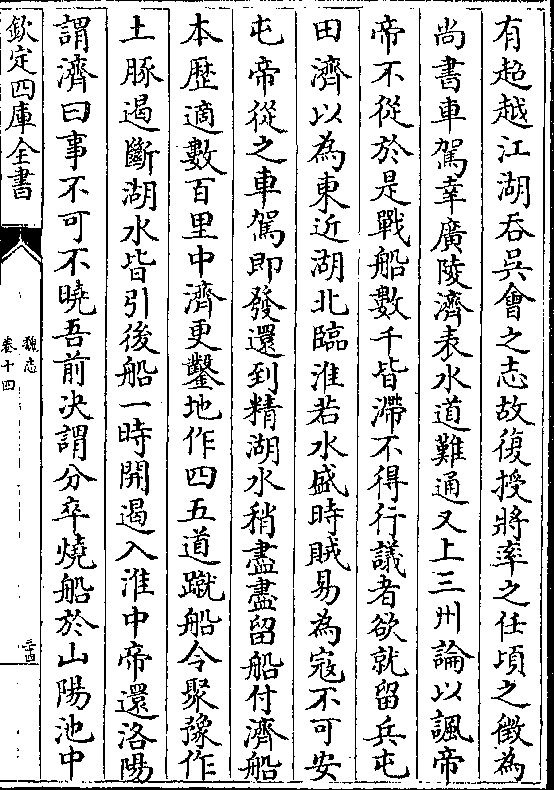 有超越江湖吞吳會之志故復授將率之任頃之徵為
尚書車駕幸廣陵濟表水道難通又上三州論以諷帝
帝不從於是戰船數千皆滯不得行議者欲就留兵屯
田濟以為東近湖北臨淮若水盛時賊易為寇不可安
屯帝從之車駕即發還到精湖水稍盡盡留船付濟船
本歷適數百里中濟更鑿地作四五道蹴船令聚豫作
土豚遏斷湖水皆引後船一時開遏入淮中帝還洛陽
謂濟曰事不可不曉吾前決謂分卒燒船於山陽池中
欽定四庫全書
魏志
卷十四
三十四